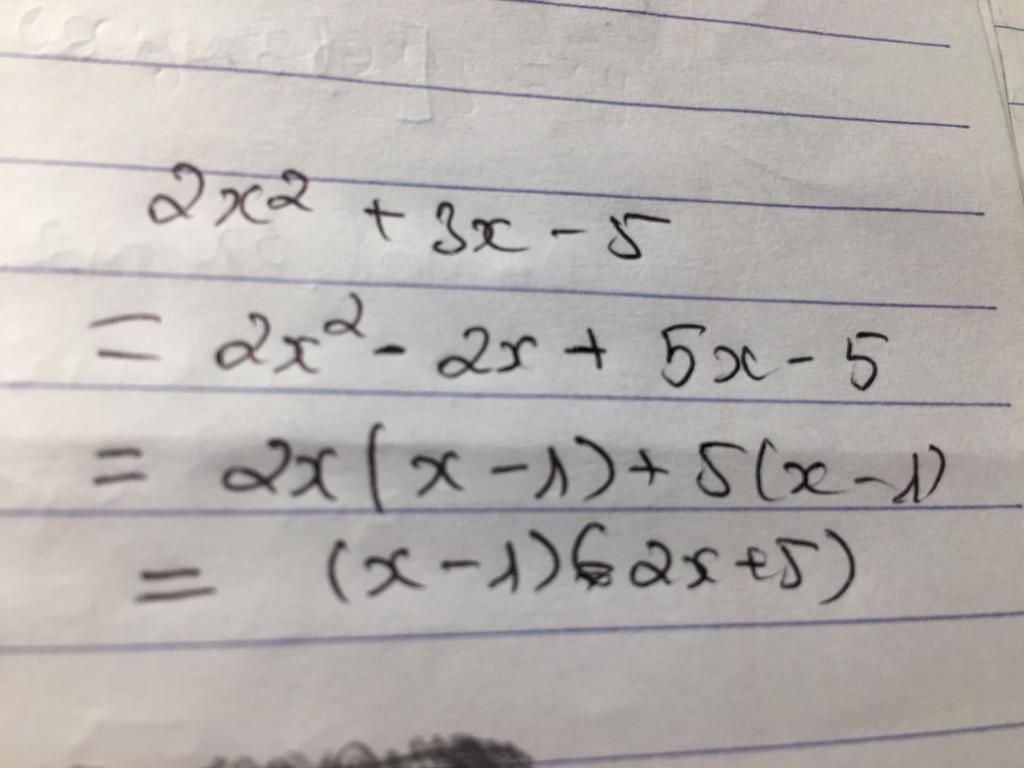 2x² + 3x - 5
= 2x² - 2x + 5x - 5
= 2x(x - 1) + 5(x - 1)
= (x - 1)(2x + 5)